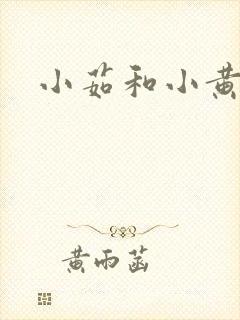 小茹和小黄
黄雨菡